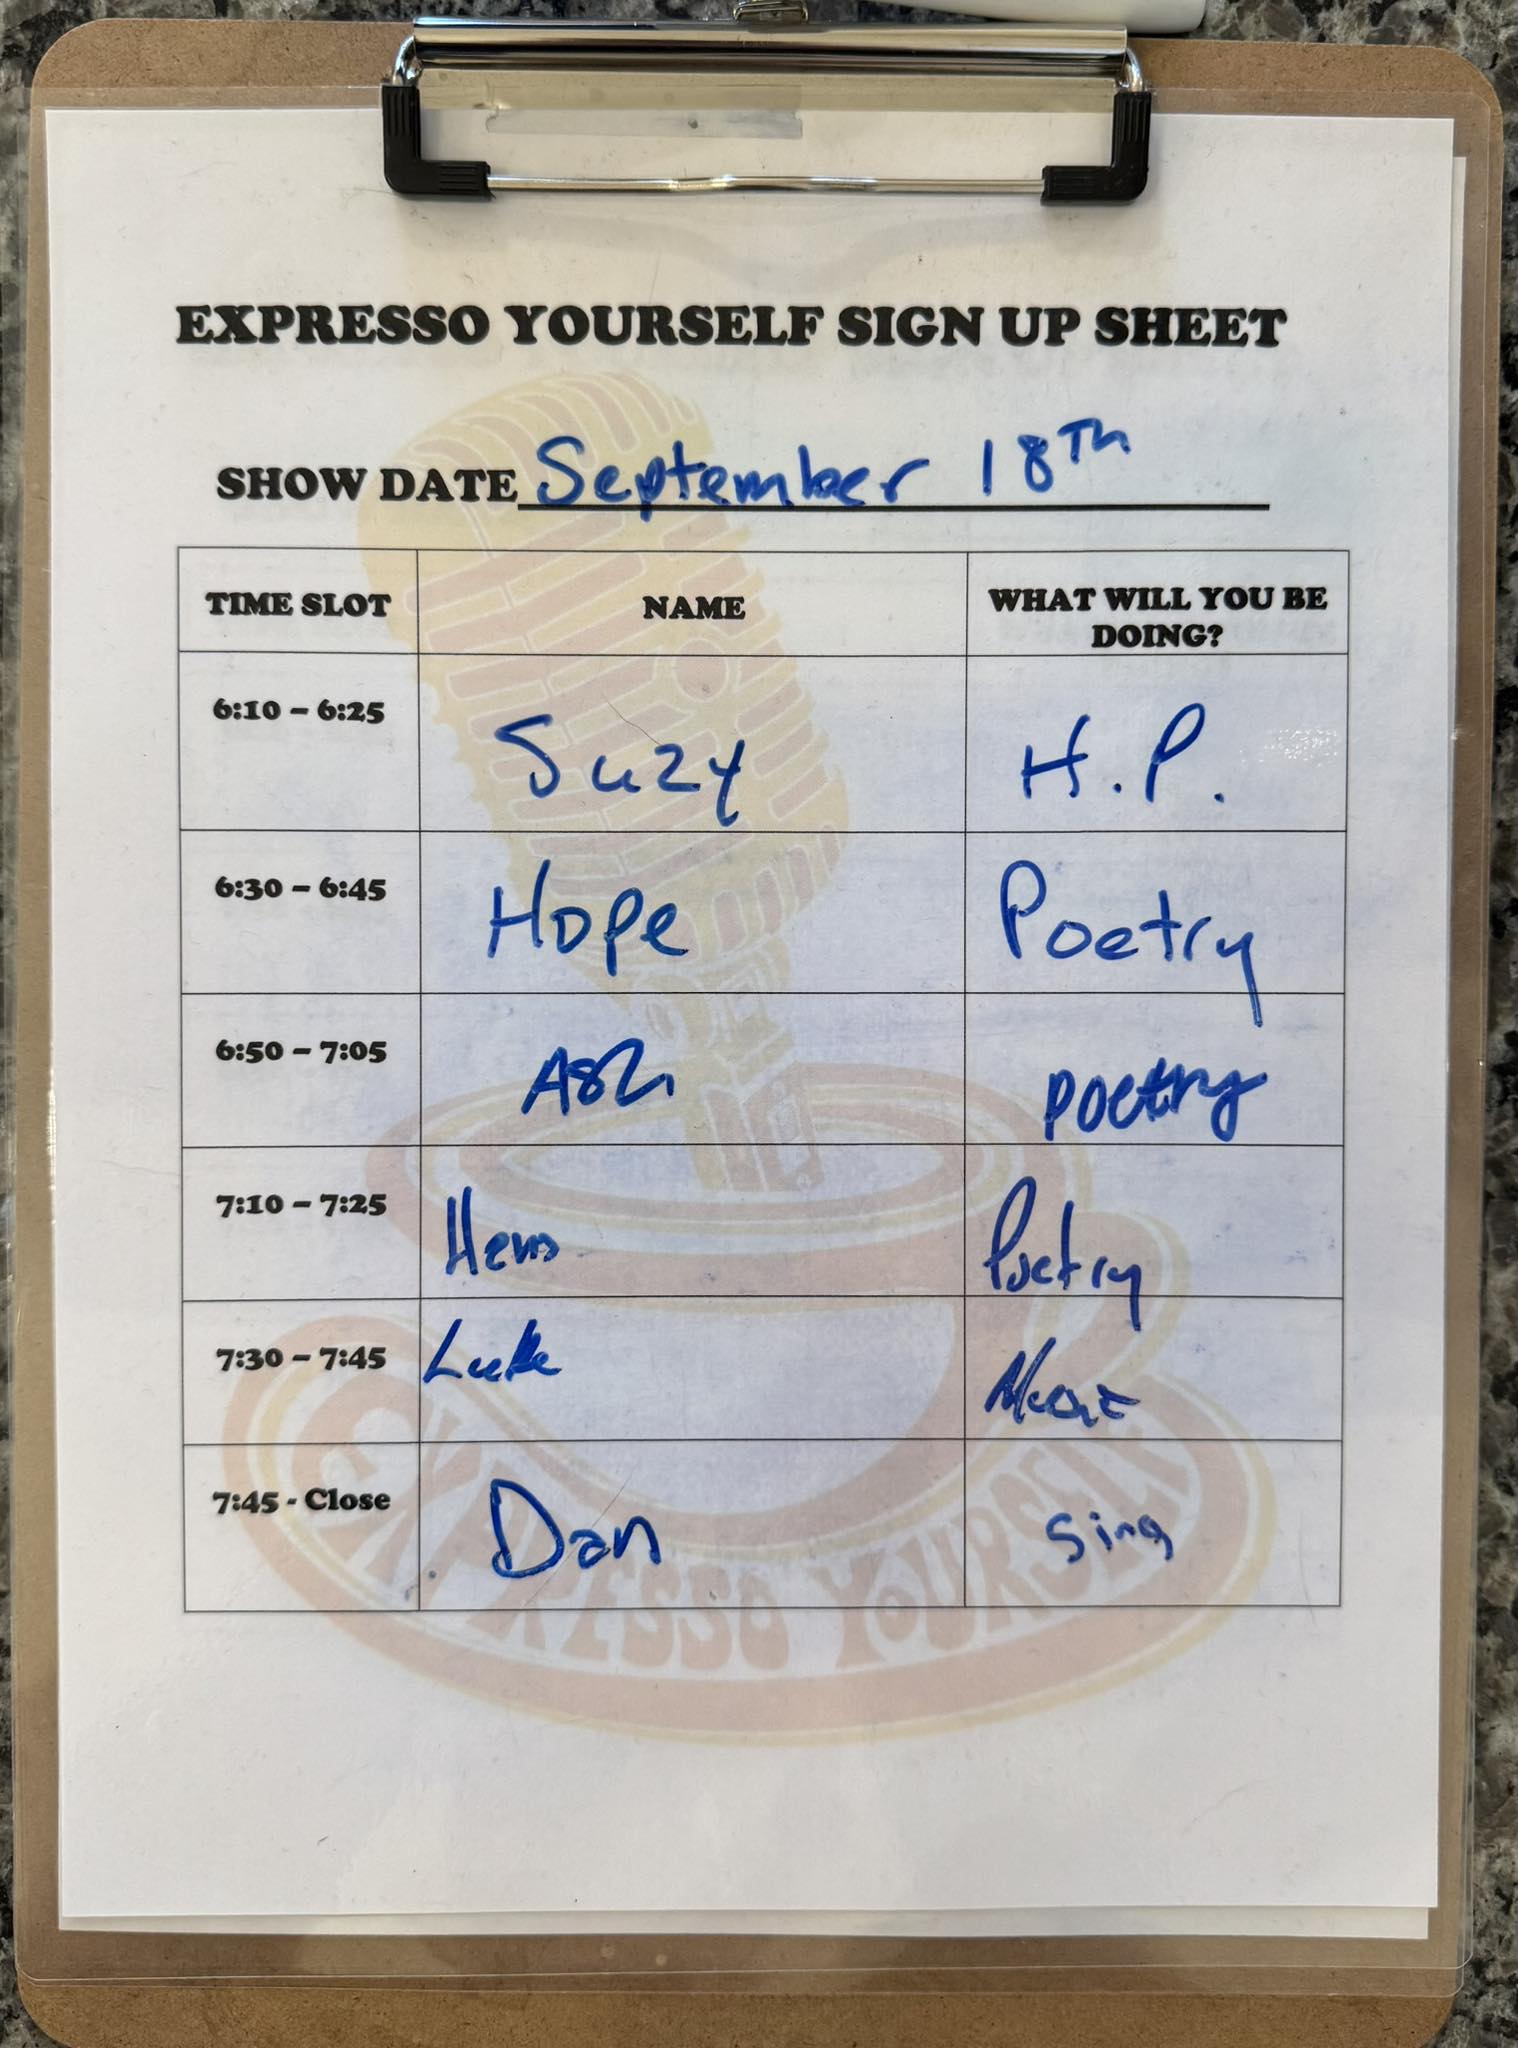 EXPRESSO YOURSELF SIGN UP SHEET
SHOW DATE September 18Th
TIME SLOT NAME WHAT WILL YOU BE DOING?
6:10 – 6:25 Suzy H.P.
6:30 – 6:45 Hope Poetry
6:50 – 7:05 Ash poetry
7:10 – 7:25 Poetry
7:30 – 7:45 Luke
7:45 - Close Dan Sing
EXPRESSO YOURSELF